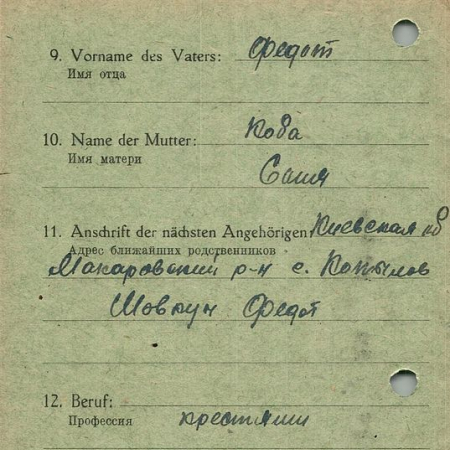 9. Vorname des Vaters: Федот
Имя отца
10. Name der Mutter: Коба
Имя матери
Саня
11. Anschrift der nächsten Angehörigen Киевская об
Адрес ближайших родственников
Макаровский р-н с. Копылов
Шовкун Федот
12. Beruf:
Профессия крестянин